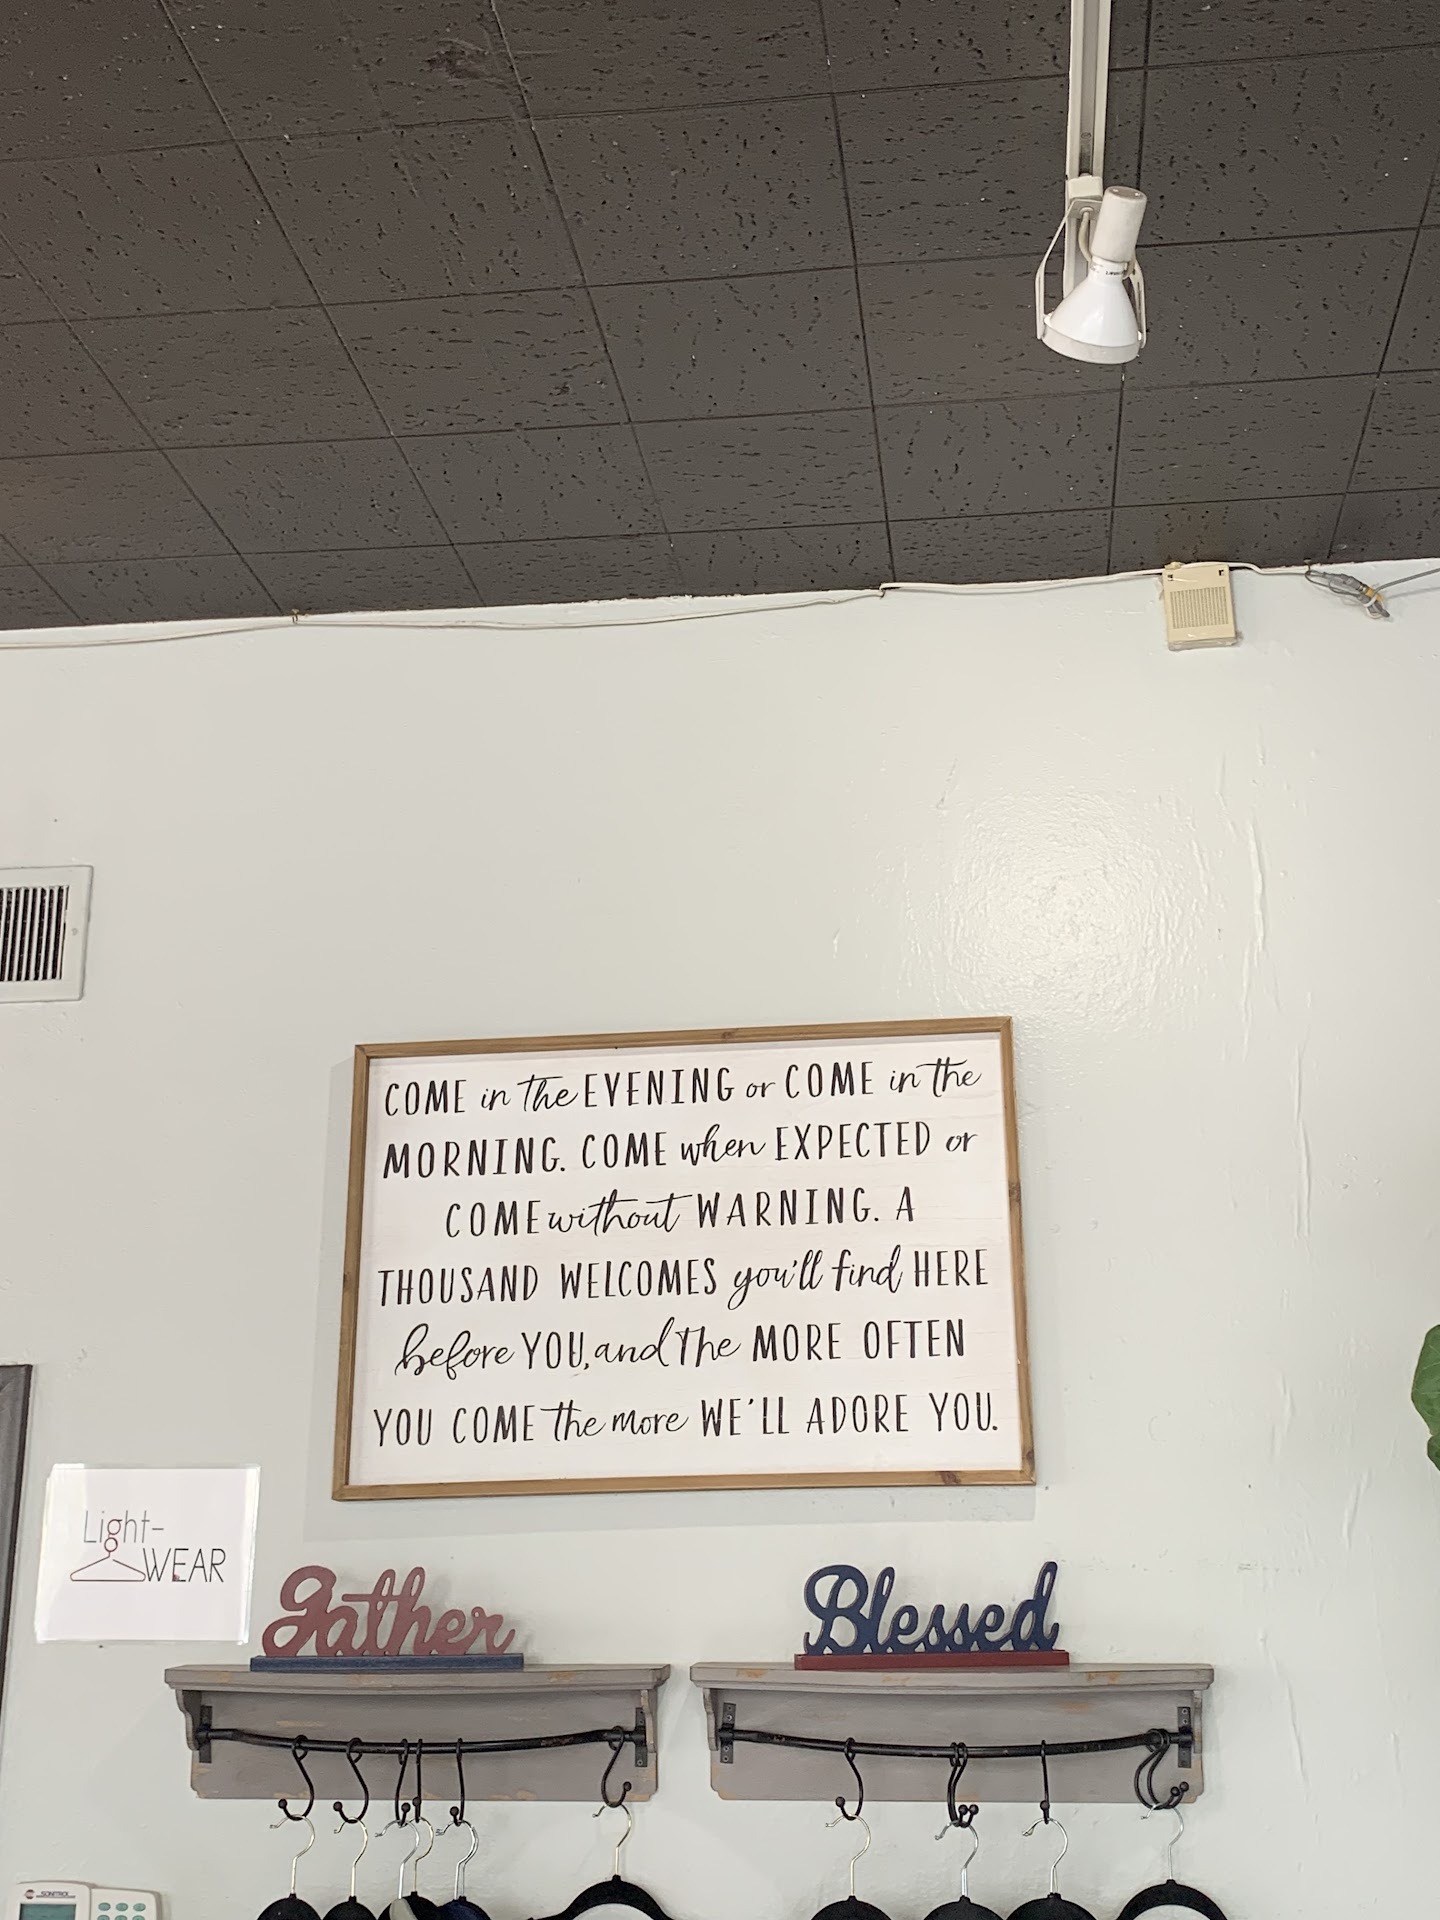 COME in the EVENING or COME in the
MORNING. COME when EXPECTED or
COME without WARNING. A
THOUSAND WELCOMES you'll find HERE
before YOU, and the MORE OFTEN
YOU COME the more WE'LL ADORE YOU.
Light-
WEAR
gather
Blessed
SONITROL